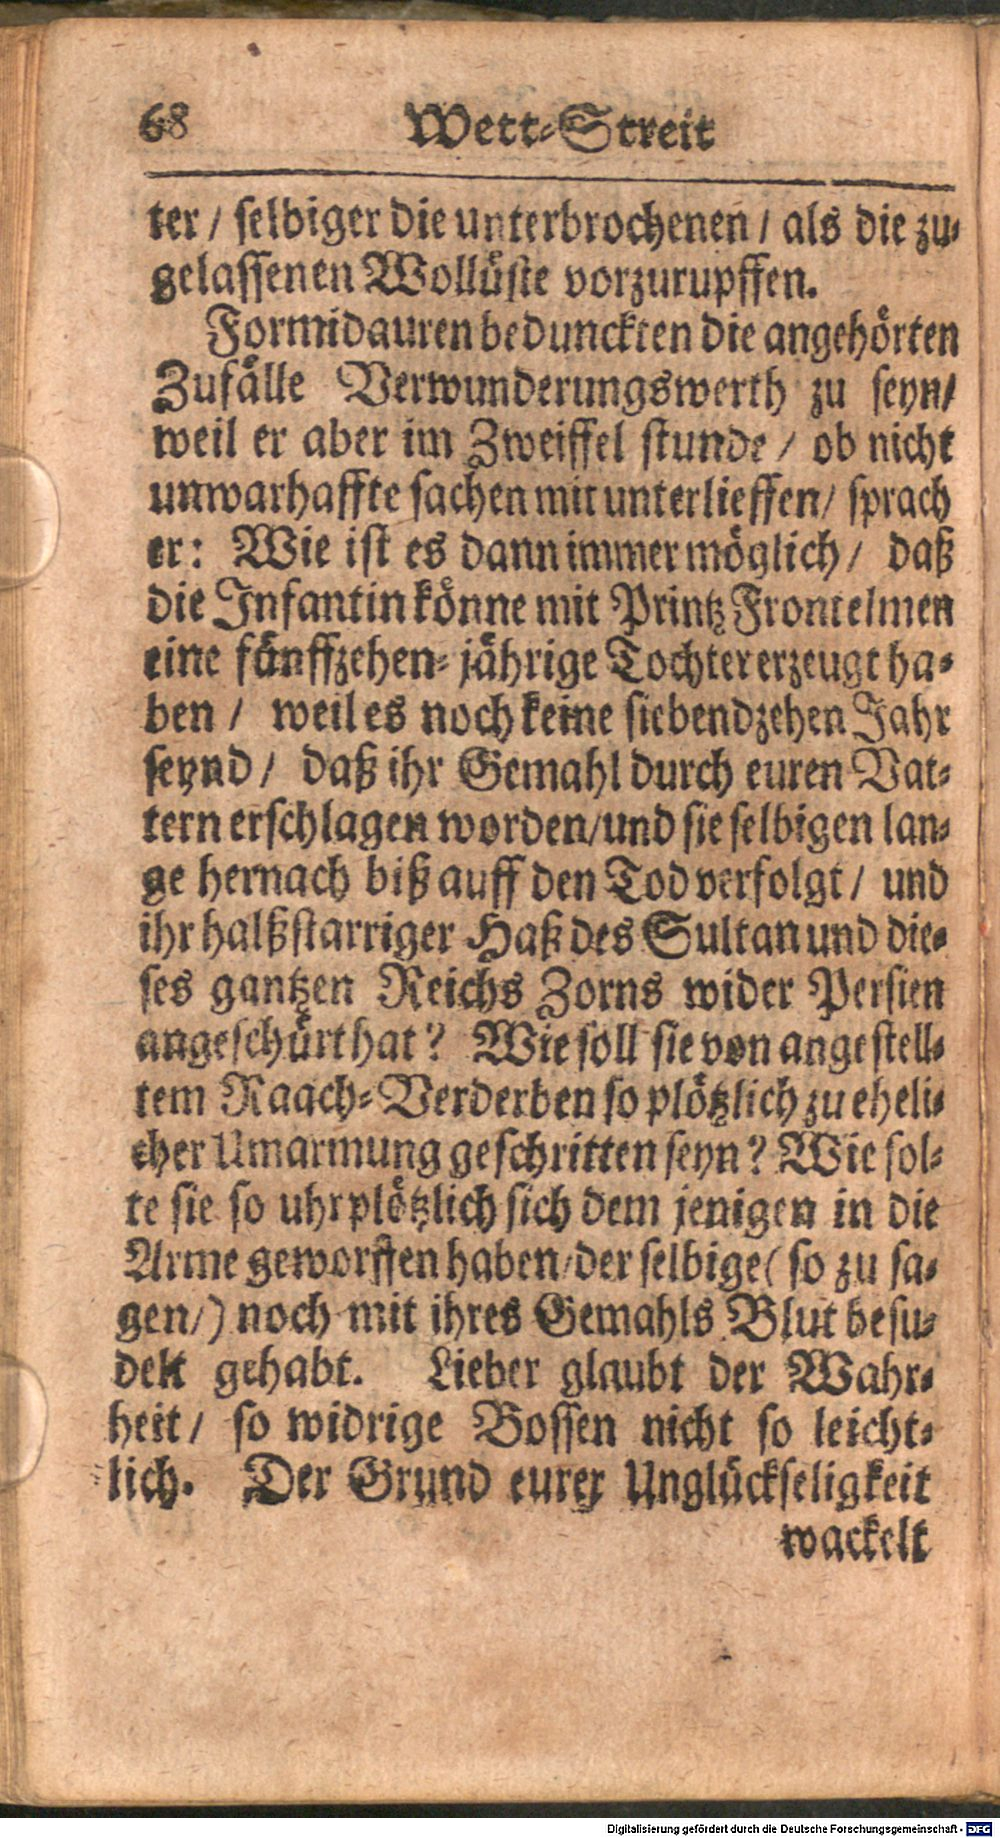 68 Wett-Streit
ter / selbiger die unterbrochenen / als die zu-
gelassenen Wollüste vorzurupffen.
Formidauren bedunckten die angehörten
Zufälle Verwunderungswerth zu seyn/
weil er aber im Zweiffel stunde / ob nicht
unwarhaffte sachen mit unterlieffen / sprach
er: Wie ist es dann immer möglich / daß
die Infantin könne mit Printz Frontelmen
eine fünffzehen-jährige Tochter erzeugt ha-
ben / weil es noch keine siebendzehen Jahr
seynd / daß ihr Gemahl durch euren Vat-
tern erschlagen worden/und sie selbigen lan-
ge hernach biß auff den Tod verfolgt / und
ihr halßstarriger Haß des Sultan und die-
ses gantzen Reichs Zorns wider Persien
angeschürt hat? Wie soll sie von angestell-
tem Raach-Verderben so plötzlich zu eheli-
cher Umarmung geschritten seyn? Wie sol-
te sie so uhrplötzlich sich dem jenigen in die
Arme geworffen haben/der selbige ( so zu sa-
gen/) noch mit ihres Gemahls Blut besu-
delt gehabt. Lieber glaubt der Wahr-
heit / so widrige Bossen nicht so leicht-
lich. Der Grund eurer Unglückseligkeit
wackelt
Digitalisierung gefördert durch die Deutsche Forschungsgemeinschaft - DFG